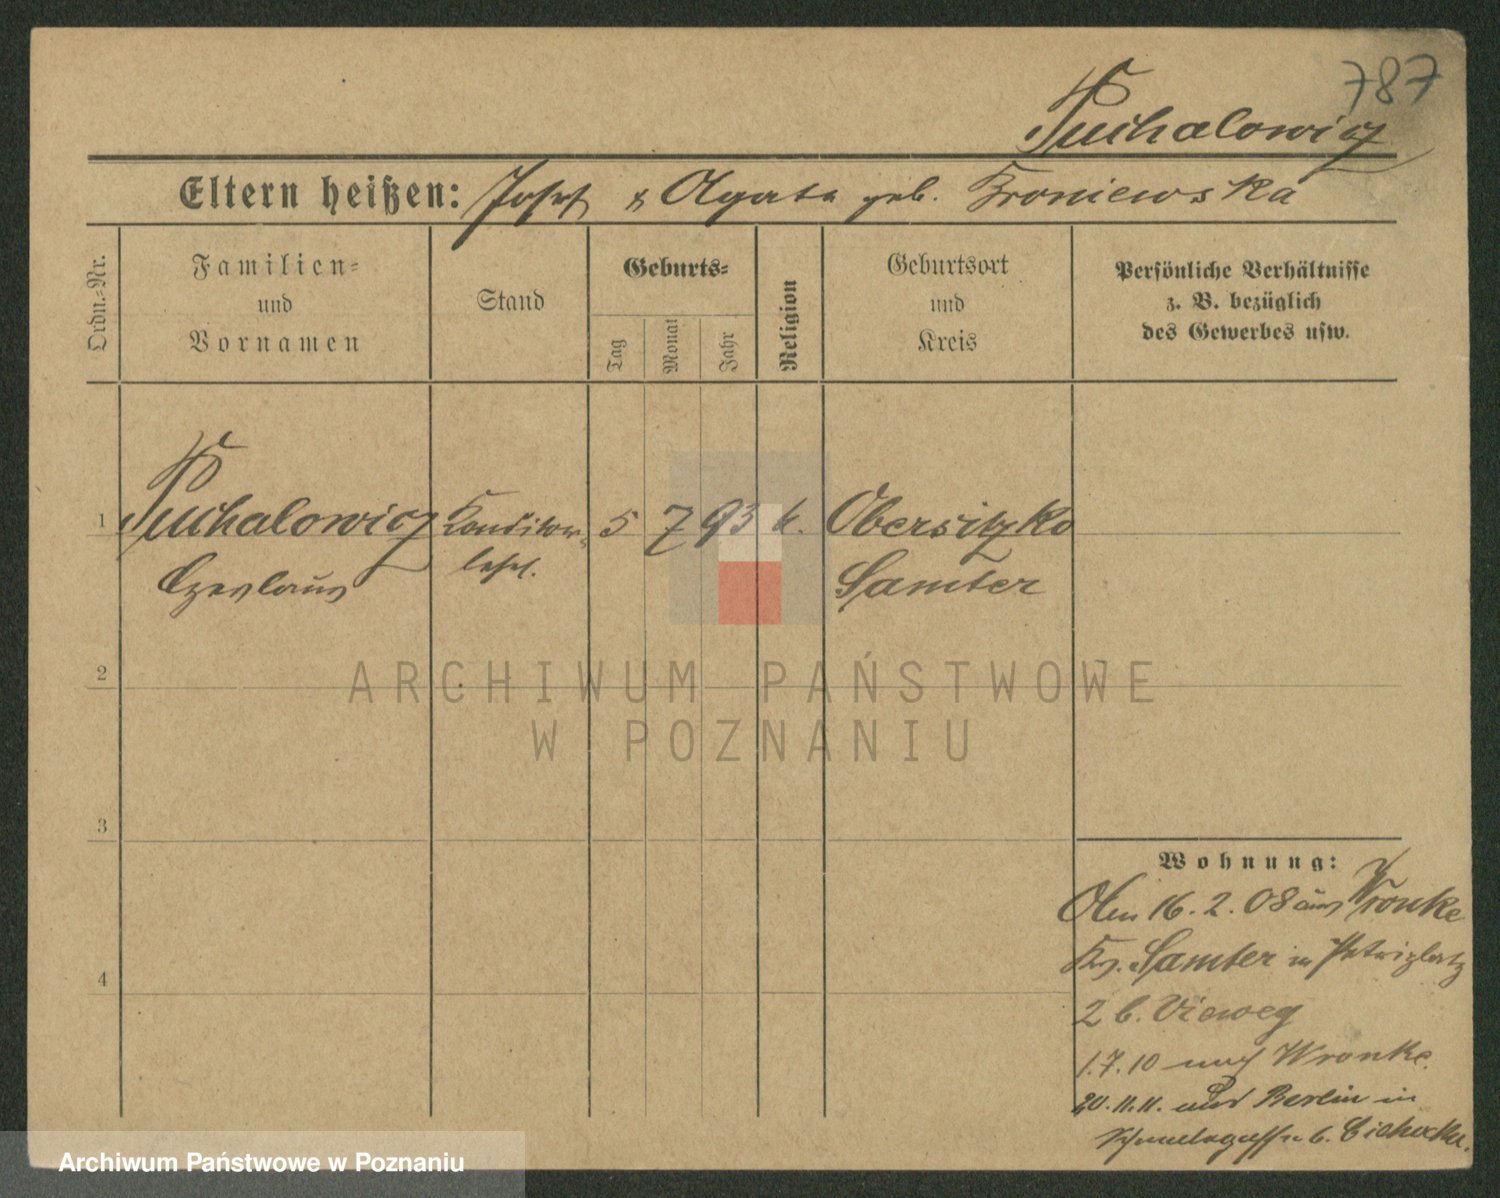 787
Puchalowicz
Eltern heißen: Josef & Agata geb. Kroniewska
Ordn.-Nr.
Familien-
und
Vornamen
Stand
Geburts-
Tag
Monat
Jahr
Religion
Geburtsort
und
Kreis
Persönliche Verhältnisse
z. B. bezüglich
des Gewerbes usw.
1 Puchalowicz Konditor- 5 7 93 k. Obersitzko
Czeslaus lehrl. Samter
2
3
4
Wohnung:
Am 16. 2. 08 aus Wronke
Kr. Samter in Petriplatz
2 b. Vieweg
1.7.10 nach Wronke.
20.11.11. aus Berlin in
b.
ARCHIWUM PAŃSTWOWE
W POZNANIU
Archiwum Państwowe w Poznaniu